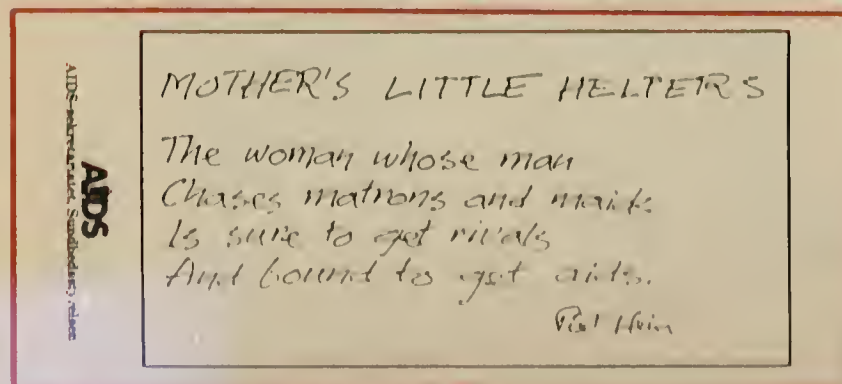 AIDS-sekretariatet, Sundhedsstyrelsen
AIDS
MOTHER'S LITTLE HELPERS
The woman whose man
Chases matrons and maids
Is sure to get rivals
And bound to get aids.
Piet Hein